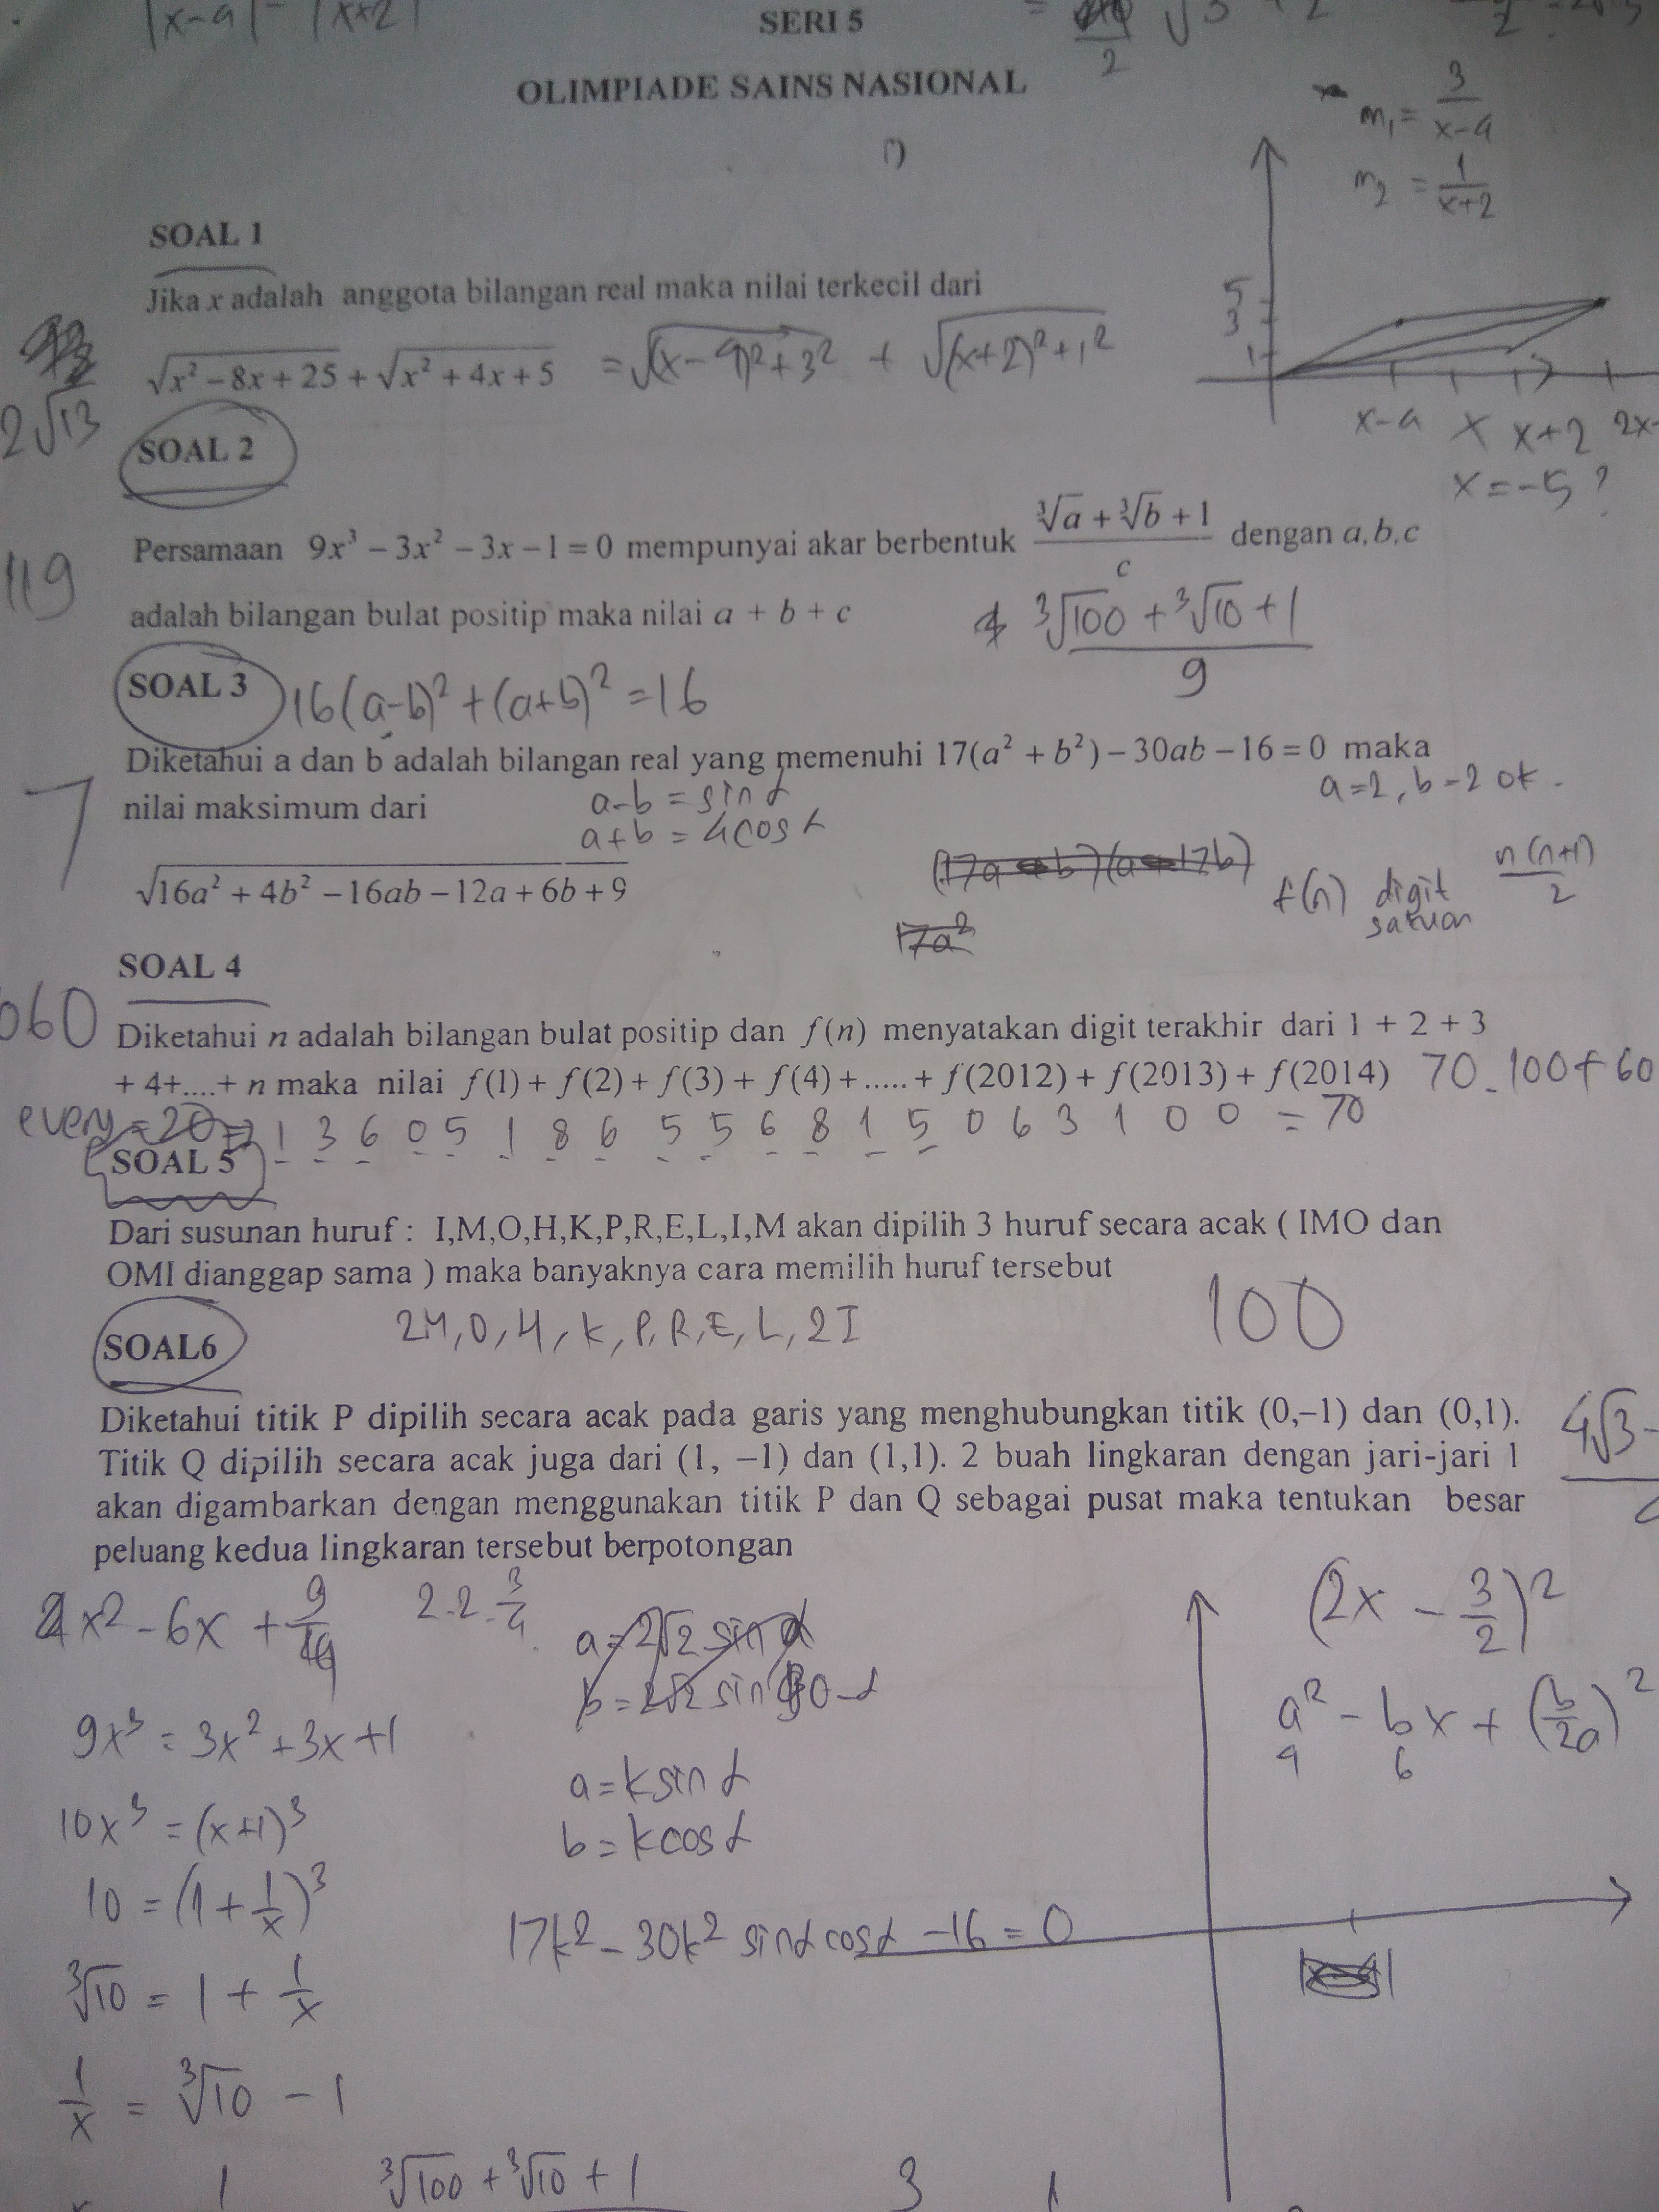 |x-4| - |x+2|
SERI 5
OLIMPIADE SAINS NASIONAL
m₁ = 3/(x-4)
m₂ = 1/(x+2)
SOAL 1
Jika x adalah anggota bilangan real maka nilai terkecil dari
√(x² – 8x + 25) + √(x² + 4x + 5) = √((x-4)²+3²) + √((x+2)²+1²)
2√13
5
3
1
x-4 x x+2 2x-
x = -5 ?
SOAL 2
Persamaan 9x³ – 3x² – 3x – 1 = 0 mempunyai akar berbentuk (∛a + ∛b + 1)/c dengan a,b,c
119
adalah bilangan bulat positip maka nilai a + b + c
(∛100 + ∛10 + 1)/9
SOAL 3 16(a-b)² + (a+b)² = 16
Diketahui a dan b adalah bilangan real yang memenuhi 17(a² + b²) – 30ab – 16 = 0 maka
a=2, b=2 ok.
nilai maksimum dari
a-b = sin α
a+b = 4 cos α
7
√(16a² + 4b² – 16ab – 12a + 6b + 9)
f(n) digit satuan n(n+1)/2
17a²
SOAL 4
060
Diketahui n adalah bilangan bulat positip dan f(n) menyatakan digit terakhir dari 1 + 2 + 3
+ 4+....+ n maka nilai f(1) + f(2) + f(3) + f(4) +.....+ f(2012) + f(2013) + f(2014) 70.100+60
every = 20 => 1 3 6 0 5 1 8 6 5 5 6 8 1 5 0 6 3 1 0 0 = 70
SOAL 5
Dari susunan huruf : I,M,O,H,K,P,R,E,L,I,M akan dipilih 3 huruf secara acak ( IMO dan
OMI dianggap sama ) maka banyaknya cara memilih huruf tersebut
2M, O, H, K, P, R, E, L, 2I
100
SOAL6
Diketahui titik P dipilih secara acak pada garis yang menghubungkan titik (0,–1) dan (0,1).
Titik Q dipilih secara acak juga dari (1, –1) dan (1,1). 2 buah lingkaran dengan jari-jari 1
akan digambarkan dengan menggunakan titik P dan Q sebagai pusat maka tentukan besar
peluang kedua lingkaran tersebut berpotongan
4√3 -
4x² - 6x + 9/4
2.2.3/4
a = 2√2 sin α
b = 2√2 sin 90-α
(2x - 3/2)²
a² - bx + (b/2a)²
4 6
9x³ = 3x² + 3x + 1
a = k sin α
10x³ = (x+1)³
b = k cos α
10 = (1 + 1/x)³
17k² - 30k² sin α cos α - 16 = 0
∛10 = 1 + 1/x
1/x = ∛10 - 1
∛100 + ∛10 + 1